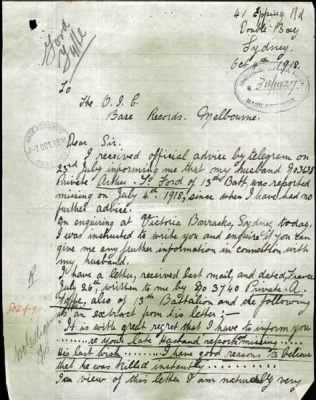 41 Epping Rd
Double Bay
Sydney.
Oct 4th 1918.
Ford
To
The O.I.C.
Base Records. Melbourne.
Dear Sir.
I received official advice by telegram on
23rd July informing me that my husband No 3628
Private Arthur. Ford of 13th Batt was reported
missing on July 4th 1918, since when I have had no
further advice.
On enquiring at Victoria Barracks, Sydney today,
I was instructed to write you and enquire if you can
give me any further information in connection with
my husband.
I have a letter, received last mail, and dated France
July 28th written to me by No 3740 Private A.
also of 13th Battalion and the following
is an extract from his letter:-
"It is with great regret that I have to inform you
re your late Husband reported missing
His last wish I have good reasons to believe
that he was killed instantly
In view of this letter I am naturally very